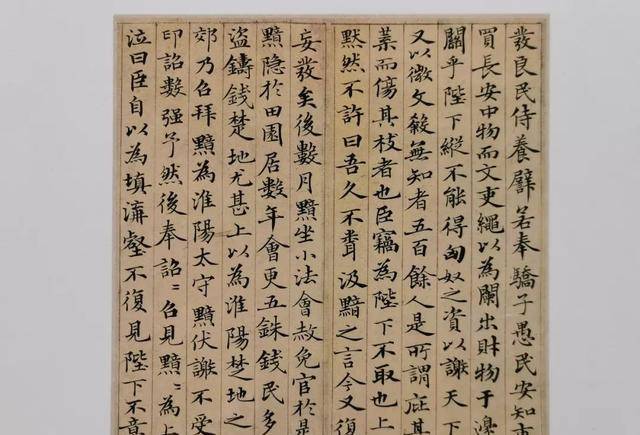 發良民侍養譬若奉驕子愚民安知市
買長安中物而文吏繩以為闌出財物于邊
關乎陛下縱不能得匈奴之資以謝天下
又以微文殺無知者五百餘人是所謂庇其
葉而傷其枝者也臣竊為陛下不取也上
默然不許曰吾久不聞汲黯之言今又復
妄發矣後數月黯坐小法會赦免官於是
黯隐於田園居數年會更五銖錢民多
盜鑄錢楚地尤甚上以為淮陽楚地之
郊乃召拜黯為淮陽太守黯伏謝不受
印詔數强予然後奉詔〻召見黯〻為上
泣曰臣自以為填溝壑不復見陛下不意